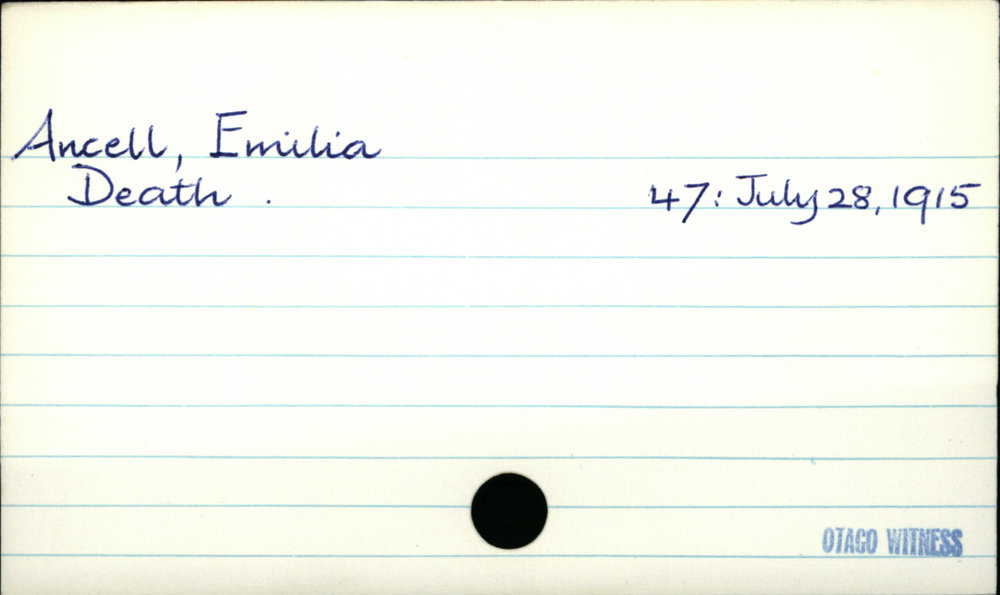 Ancell, Emilia
Death . 47: July 28, 1915
OTAGO WITNESS